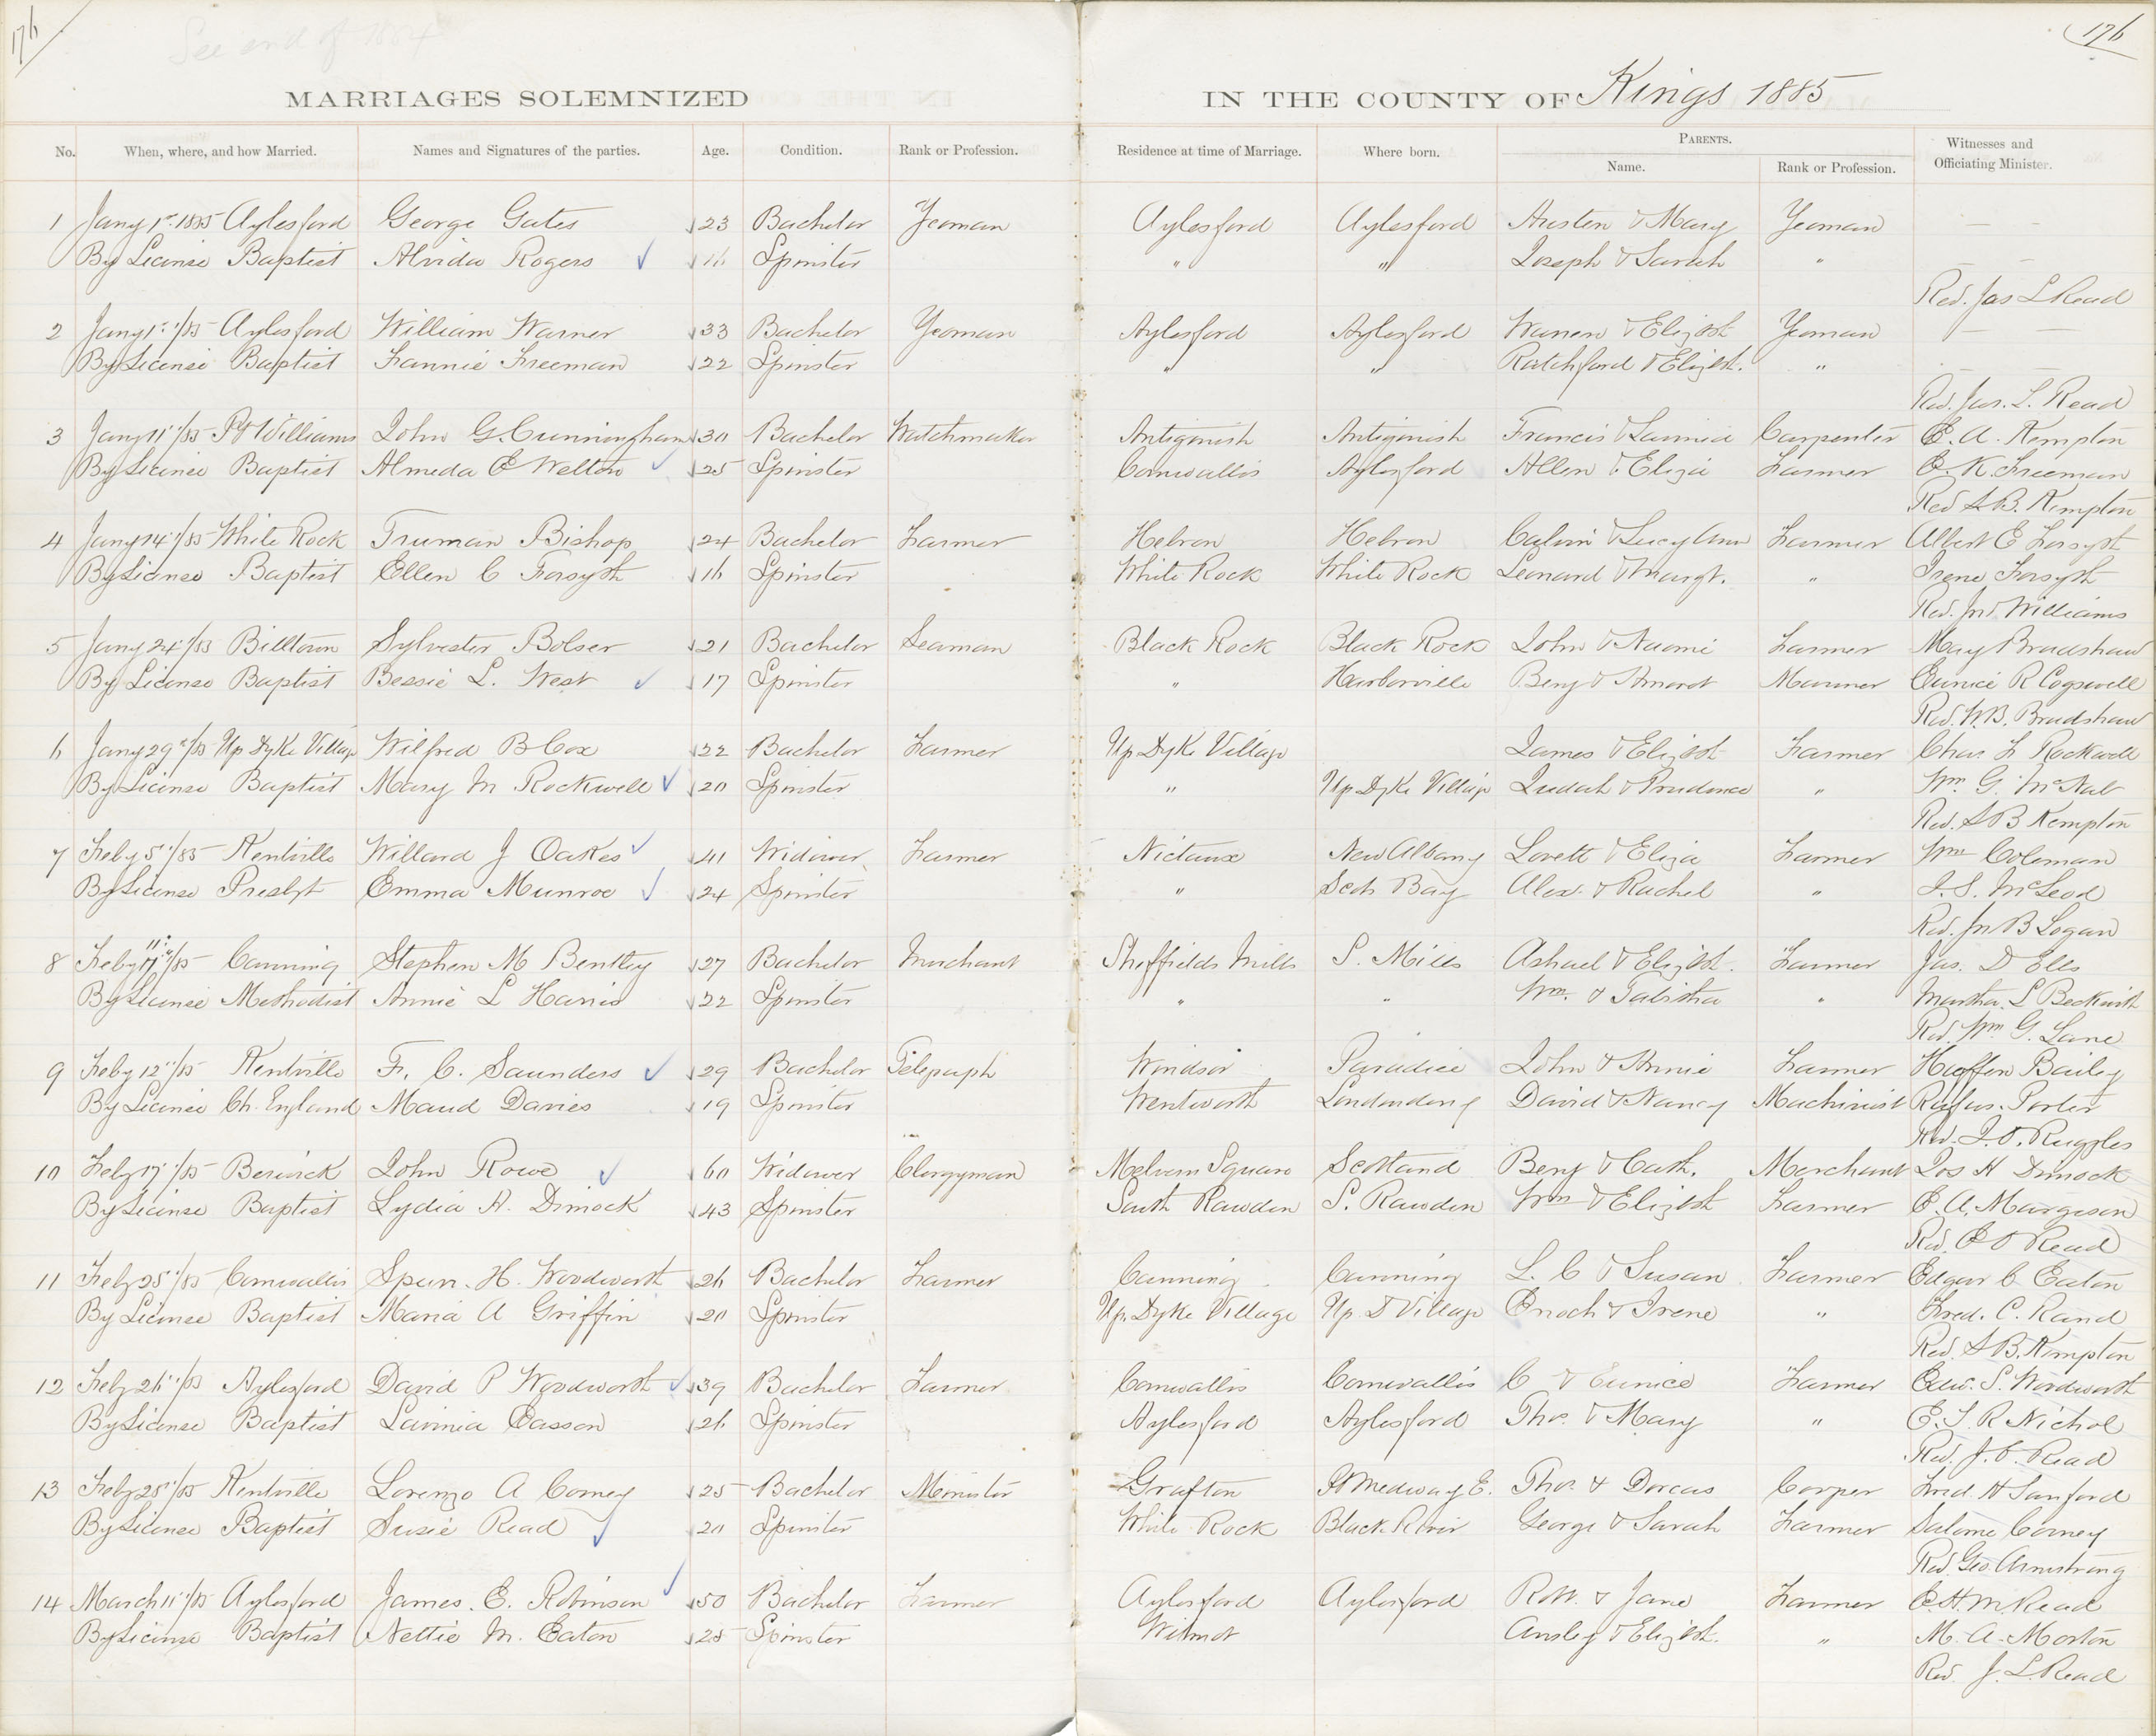 176
See end of 1884
176
MARRIAGES SOLEMNIZED IN THE COUNTY OF Kings 1885
No. When, where, and how Married. Names and Signatures of the parties. Age. Condition. Rank or Profession. Residence at time of Marriage. Where born. PARENTS. Name. Rank or Profession. Witnesses and Officiating Minister.
1 Jany 1st 1885 Aylesford George Gates 23 Bachelor Yeoman Aylesford Aylesford Austen & Mary Yeoman — —
By License Baptist Alvida Rogers 16 Spinster " " Joseph & Sarah " — —
Rev. Jas L Read
2 Jany 1st /85 Aylesford William Warner 33 Bachelor Yeoman Aylesford Aylesford Warren & Elizbt Yeoman — —
By License Baptist Fannie Freeman 22 Spinster " " Ratchford & Elizbt. " — —
Rev. Jas. L. Read
3 Jany 11 /85 Pt Williams John G. Cunningham 30 Bachelor Watchmaker Antigonish Antigonish Francis & Lavinia Carpenter E. A. Kempton
By License Baptist Almeda E Welton 25 Spinster Cornwallis Aylesford Allen & Eliza Farmer E. K. Freeman
Rev S. B. Kempton
4 Jany 14 /85 White Rock Truman Bishop 24 Bachelor Farmer Hebron Hebron Calvin & Lucy Ann Farmer Albert E Forsyth
By License Baptist Ellen C Forsyth 16 Spinster White Rock White Rock Leonard & Margt. " Irene Forsyth
Rev. Jno Williams
5 Jany 24 /85 Billtown Sylvester Bolser 21 Bachelor Seaman Black Rock Black Rock John & Naomi Farmer May Bradshaw
By License Baptist Bessie L. West 17 Spinster " Harborville Benj & Mariner Eunice R Cogswell
Rev. W. B. Bradshaw
6 Jany 29 /85 Up Dyke Village Wilfred B Cox 22 Bachelor Farmer Up Dyke Village James & Elizbt Farmer Chas. F Rockwell
By License Baptist Mary M Rockwell 20 Spinster " Up Dyke Village Judah & Prudence " Wm. G. McNab
Rev. S B Kempton
7 Feby 5 /85 Kentville Willard J Oakes 41 Widower Farmer Nictaux New Albany Lovett & Eliza Farmer Wm Coleman
By License Presbyt Emma Munroe 24 Spinster " Scots Bay Alex. & Rachel " J. S. McLeod
Rev. Jn B Logan
8 Feby 11 /85 Canning Stephen M Bentley 27 Bachelor Merchant Sheffields Mills S. Mills Ashael & Elizbt. Farmer Jas. D Ells
By License Methodist Annie L Harris 22 Spinster " " Wm. & Tabitha " Martha. L Beckwith
Rev. Wm G. Lane
9 Feby 12 /85 Kentville F. C. Saunders 29 Bachelor Telegraph Windsor Paradice John & Annie Farmer Bailey
By License Ch. England Maud Davies 19 Spinster Wentworth Londonderry David & Nancy Machinist Rufus. Porter
Rev. J. O. Ruggles
10 Feby 17 /85 Berwick John Rowe 60 Widower Clergyman Melvern Square Scotland Benj & Cath. Merchant Jos H Dimock
By License Baptist Lydia H. Dimock 43 Spinster South Rawden S. Rawden Wm & Elizbt Farmer E. A. Margeson
Rev. E O Read
11 Feby 25 /85 Cornwallis Spur. H. Woodworth 26 Bachelor Farmer Canning Canning L. C & Susan Farmer Edgar C Eaton
By License Baptist Maria A Griffin 20 Spinster Up. Dyke Village Up D Village Enoch & Irene " Fred. C. Rand
Rev. S B. Kempton
12 Feby 26 /85 Aylesford David P Woodworth 39 Bachelor Farmer Cornwallis Cornwallis C & Eunice Farmer Edw. S. Woodworth
By License Baptist Lavinia Easson 26 Spinster Aylesford Aylesford Thos. & Mary " E. S. R Nichol
Rev. J. L. Read
13 Feby 25 /85 Kentville Lorenzo A Corney 25 Bachelor Minister Grafton Pt Medway E. Thos. & Dorcas Cooper Fred. H Sanford
By License Baptist Susie Read 20 Spinster White Rock Black River George & Sarah Farmer Salome Corney
Rev. Geo. Armstrong
14 March 11 /85 Aylesford James. E. Robinson 50 Bachelor Farmer Aylesford Aylesford Robt. & Jane Farmer E. H. M Read
By License Baptist Nettie M. Eaton 25 Spinster Wilmot Ansley & Elizbt. " M. A. Morton
Rev. J. L. Read